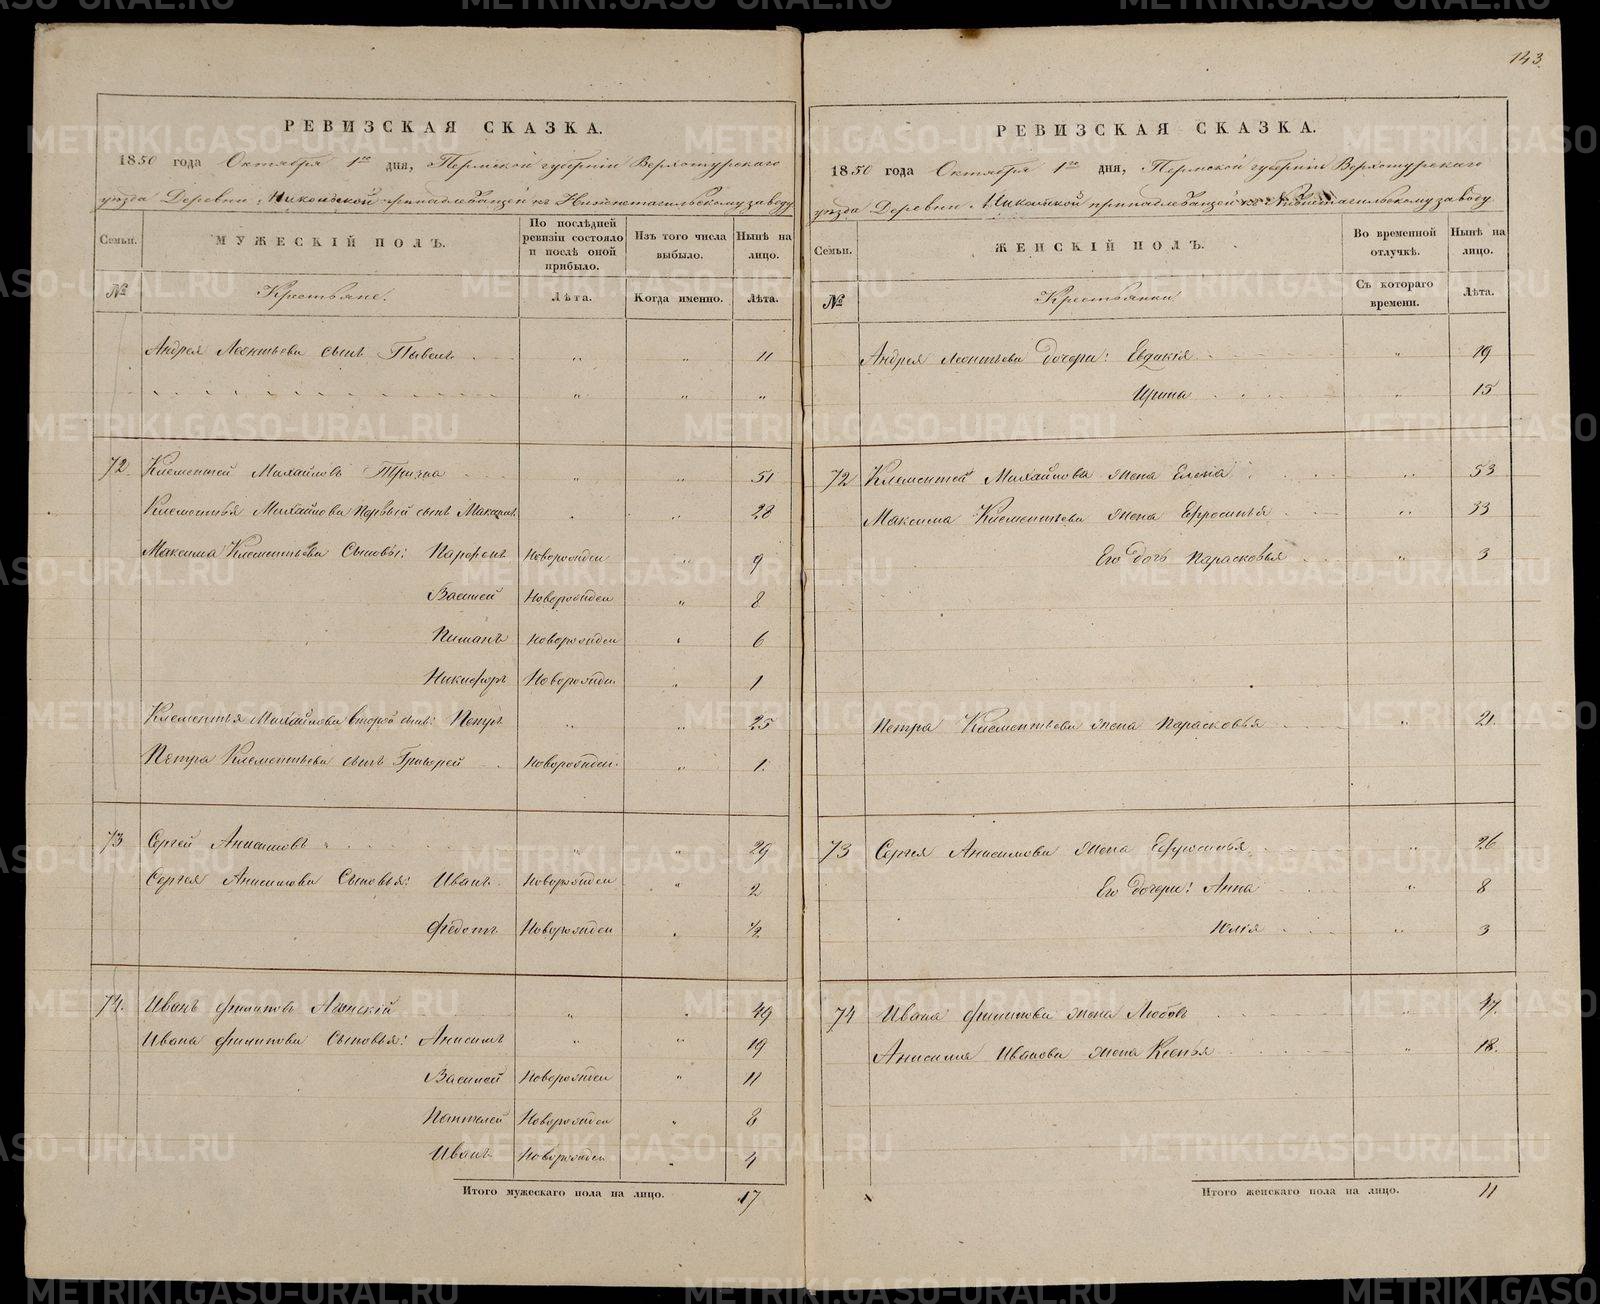 143.
РЕВИЗСКАЯ СКАЗКА.
1850 года Октября 1го дня, Пермской губерніи Верхотурскаго
уѣзда Деревни принадлежащей къ Нижнетагильскому заводу
Семьи.
МУЖЕСКІЙ ПОЛЪ.
По послѣдней ревизіи состояло и послѣ оной прибыло.
Изъ того числа выбыло.
Нынѣ на лицо.
№
Крестьяне.
Лѣта.
Когда именно.
Лѣта.
Андрея Леонтьева сынъ " " 11
" " "
72. Клементей Михайловъ " " 51
Клементья Михайлова первый сынъ Максимъ " " 28
Максима Клементьева Сыновья: Парфенъ Новорожден " 9
Василей Новорожден " 8
Новорожден " 6
Никифоръ Новорожден " 1
Клементья Михайлова второй сынъ Петръ " " 25
Петра Клементьева сынъ Григорей Новорожден. " 1.
73 Сергей Анисимовъ " " 29
Сергея Анисимова Сыновья: Иванъ Новорожден " 2
Федотъ Новорожден " 1/2
74. Иванъ Филиповъ " " 49
Ивана Филипова Сыновья: Анисимъ " " 19
Василей Новорожден " 11
Пантелей Новорожден " 8
Иванъ Новорожден " 4
Итого мужескаго пола на лицо. 17
РЕВИЗСКАЯ СКАЗКА.
1850 года Октября 1го дня, Пермской губерніи Верхотурскаго
уѣзда Деревни принадлежащей къ Нижнетагильскому заводу.
Семьи.
ЖЕНСКІЙ ПОЛЪ.
Во временной отлучкѣ.
Нынѣ на лицо.
№
Крестьянки
Съ котораго времени.
Лѣта.
Андрея Леонтьева дочери: Евдакія " 19
Ирина " 15
72 Клементея Михайлова жена Елена " 53
Максима Клементьева жена Ефросинья " 33
Его дочь Парасковья " 3
Петра Клементьева жена Парасковья " 21.
73 Сергея Анисимова жена Ефросинья " 26
Его дочери: Анна " 8
Юлія " 3
74 Ивана Филипова жена Любовь " 47.
Анисима Иванова жена Ксенья " 18.
Итого женскаго пола на лицо. 11
METRIKI.GASO-URAL.RU